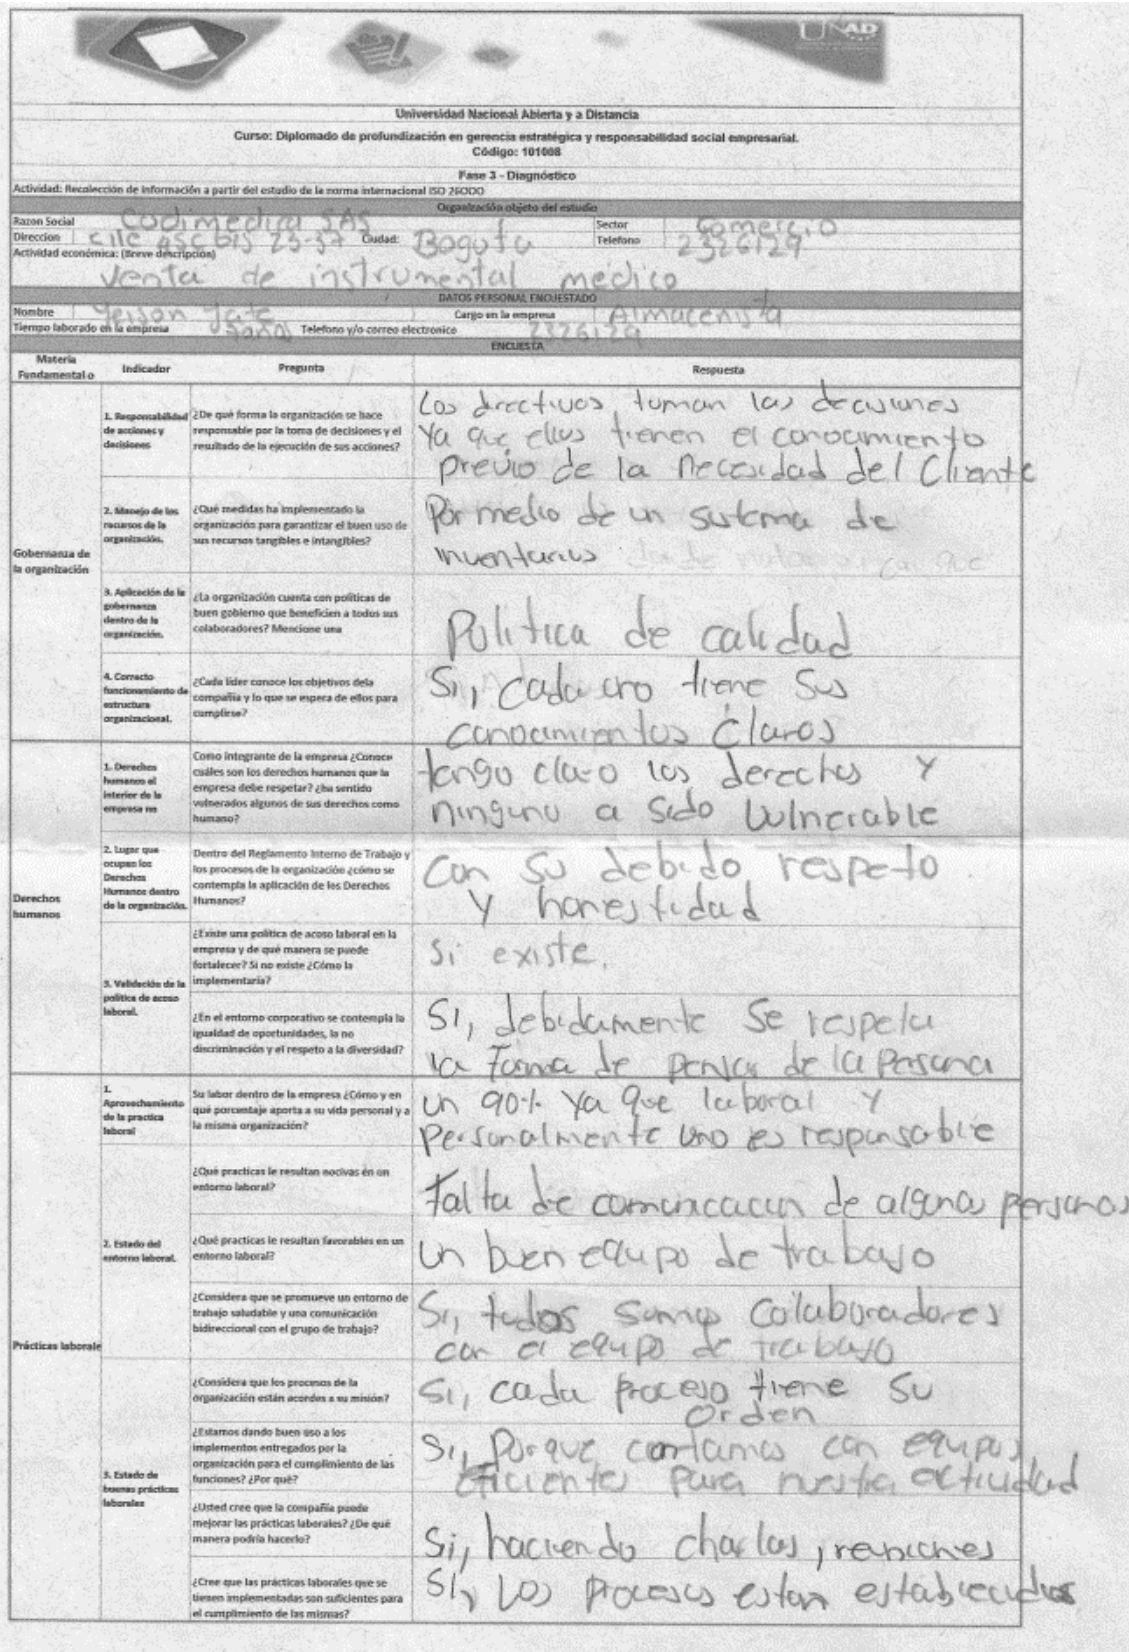 UNAD
Universidad Nacional Abierta y a Distancia
Curso: Diplomado de profundización en gerencia estratégica y responsabilidad social empresarial.
Código: 101008
Fase 3 - Diagnóstico
Actividad: Recolección de información a partir del estudio de la norma internacional ISO 26000
Organización objeto del estudio
Razon Social Codimedica SAS Sector Comercio
Direccion clle 45c bis 25-37 Ciudad: Bogota Telefono 2326129
Actividad económica: (Breve descripción)
Venta de instrumental medico
DATOS PERSONAL ENCUESTADO
Nombre Yeison Cargo en la empresa Almacenista
Tiempo laborado en la empresa Telefono y/o correo electronico 2326129
ENCUESTA
Materia Fundamental o
Indicador
Pregunta
Respuesta
Gobernanza de
la organización
1. Responsabilidad
de acciones y
decisiones
¿De qué forma la organización se hace
responsable por la toma de decisiones y el
resultado de la ejecución de sus acciones?
Los directivos, toman las decisiones
Ya que ellos tienen el conocimiento
previo de la necesidad del Cliente
2. Manejo de los
recursos de la
organización.
¿Qué medidas ha implementado la
organización para garantizar el buen uso de
sus recursos tangibles e intangibles?
Por medio de un sistema de
inventarios
3. Aplicación de la
gobernanza
dentro de la
organización.
¿La organización cuenta con políticas de
buen gobierno que beneficien a todos sus
colaboradores? Mencione una
Politica de calidad
4. Correcto
funcionamiento de
estructura
organizacional.
¿Cada líder conoce los objetivos dela
compañía y lo que se espera de ellos para
cumplirse?
Si, cada uno tiene sus
conocimientos claros
Derechos
humanos
1. Derechos
humanos al
interior de la
empresa
Como integrante de la empresa ¿Conoce
cuáles son los derechos humanos que la
empresa debe respetar? ¿ha sentido
vulnerados algunos de sus derechos como
humano?
tengo claro los derechos y
ninguno a sido vulnerable
2. Lugar que
ocupan los
Derechos
Humanos dentro
de la organización.
Dentro del Reglamento Interno de Trabajo y
los procesos de la organización ¿cómo se
contempla la aplicación de los Derechos
Humanos?
con su debido respeto
y honestidad
3. Validación de la
política de acoso
laboral.
¿Existe una política de acoso laboral en la
empresa y de qué manera se puede
fortalecer? Si no existe ¿Cómo la
implementaría?
Si existe.
¿En el entorno corporativo se contempla la
igualdad de oportunidades, la no
discriminación y el respeto a la diversidad?
Si, debidamente se respeta
la forma de pensar de la persona
Prácticas laborale
1.
Aprovechamiento
de la practica
laboral
Su labor dentro de la empresa ¿Cómo y en
qué porcentaje aporta a su vida personal y a
la misma organización?
un 90% ya que laboral y
personalmente uno es responsable
2. Estado del
entorno laboral.
¿Qué practicas le resultan nocivas en un
entorno laboral?
falta de comunicacion de algunas personas
¿Qué practicas le resultan favorables en un
entorno laboral?
un buen equipo de trabajo
¿Considera que se promueve un entorno de
trabajo saludable y una comunicación
bidireccional con el grupo de trabajo?
Si, todos somos colaboradores
con el equipo de trabajo
3. Estado de
buenas prácticas
laborales
¿Considera que los procesos de la
organización están acordes a su misión?
Si, cada proceso tiene su
orden
¿Estamos dando buen uso a los
implementos entregados por la
organización para el cumplimiento de las
funciones? ¿Por qué?
Si, porque contamos con equipos
eficientes para nuestra actividad
¿Usted cree que la compañía puede
mejorar las prácticas laborales? ¿De qué
manera podría hacerlo?
Si, haciendo charlas, reuniones
¿Cree que las prácticas laborales que se
tienen implementadas son suficientes para
el cumplimiento de las mismas?
Si, Los procesos estan establecidos